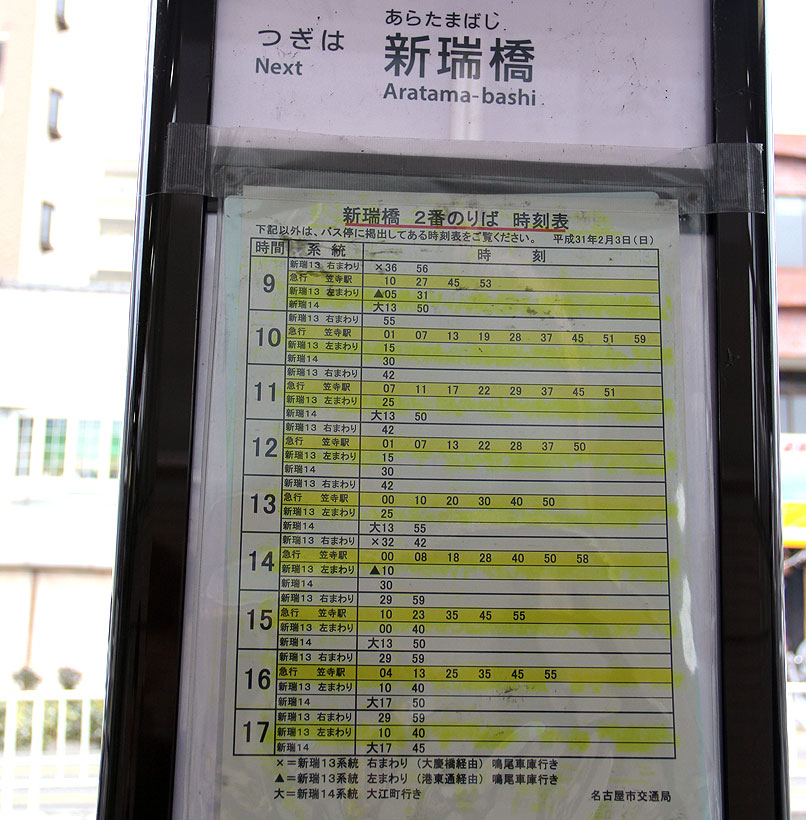 あらたまばし
つぎは 新瑞橋
Next Aratama-bashi
新瑞橋 2番のりば 時刻表
下記以外は、バス停に掲出してある時刻表をご覧ください。 平成31年2月3日(日)
時間 系統 時刻
9 新瑞13 右まわり ×36 56
急行 笠寺駅 10 27 45 53
新瑞13 左まわり ▲05 31
新瑞14 大13 50
10 新瑞13 右まわり 55
急行 笠寺駅 01 07 13 19 28 37 45 51 59
新瑞13 左まわり 15
新瑞14 30
11 新瑞13 右まわり 42
急行 笠寺駅 07 11 17 22 29 37 45 51
新瑞13 左まわり 25
新瑞14 大13 50
12 新瑞13 右まわり 42
急行 笠寺駅 01 07 13 22 28 37 50
新瑞13 左まわり 15
新瑞14 30
13 新瑞13 右まわり 42
急行 笠寺駅 00 10 20 30 40 50
新瑞13 左まわり 25
新瑞14 大13 55
14 新瑞13 右まわり ×32 42
急行 笠寺駅 00 08 18 28 40 50 58
新瑞13 左まわり ▲10
新瑞14 30
15 新瑞13 右まわり 29 59
急行 笠寺駅 10 23 35 45 55
新瑞13 左まわり 00 40
新瑞14 大13 50
16 新瑞13 右まわり 29 59
急行 笠寺駅 04 13 25 35 45 55
新瑞13 左まわり 10 40
新瑞14 大17 50
17 新瑞13 右まわり 29 59
新瑞13 左まわり 10 40
新瑞14 大17 45
×=新瑞13系統 右まわり(大慶橋経由) 鳴尾車庫行き
▲=新瑞13系統 左まわり(港東通経由) 鳴尾車庫行き
大=新瑞14系統 大江町行き 名古屋市交通局